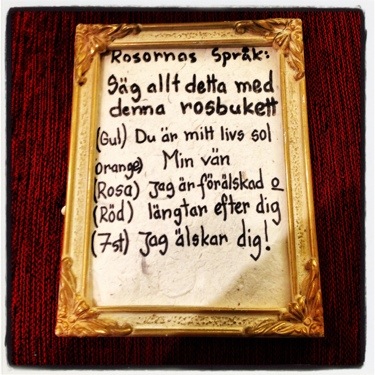 Rosornas Språk:
Säg allt detta med
denna rosbukett
(Gul) Du är mitt livs sol
orange) Min vän
(Rosa) Jag är förälskad o
(Röd) längtar efter dig
(7st) Jag älskar dig!